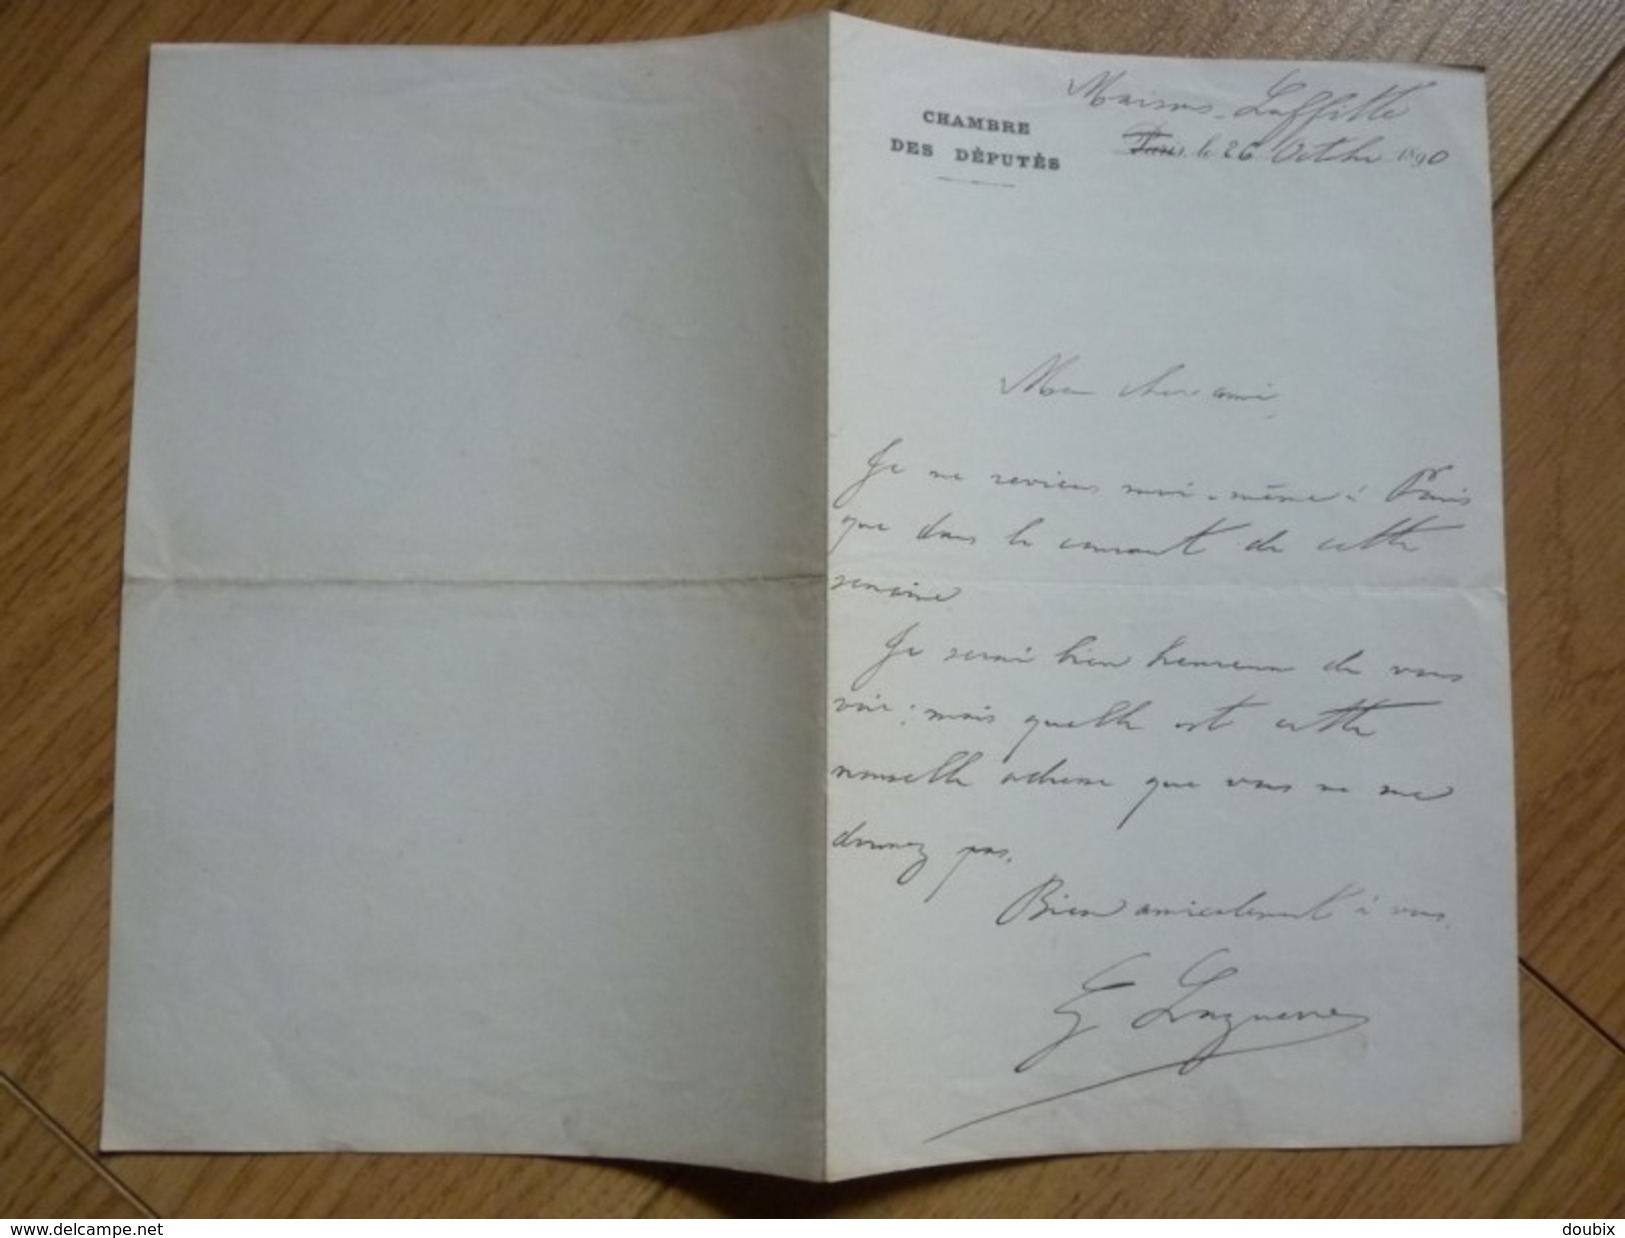 Maisons-Laffitte
CHAMBRE
DES DÉPUTÉS
Paris, le 26 Octbre 1890
Mon cher ami,
Je ne reviens moi-même à Paris
que dans le courant de cette
semaine.
Je serai bien heureux de vous
voir ; mais quelle est cette
nouvelle adresse que vous ne me
donnez pas.
Bien amicalement à vous.
G Laguerre
www.delcampe.net
doubix